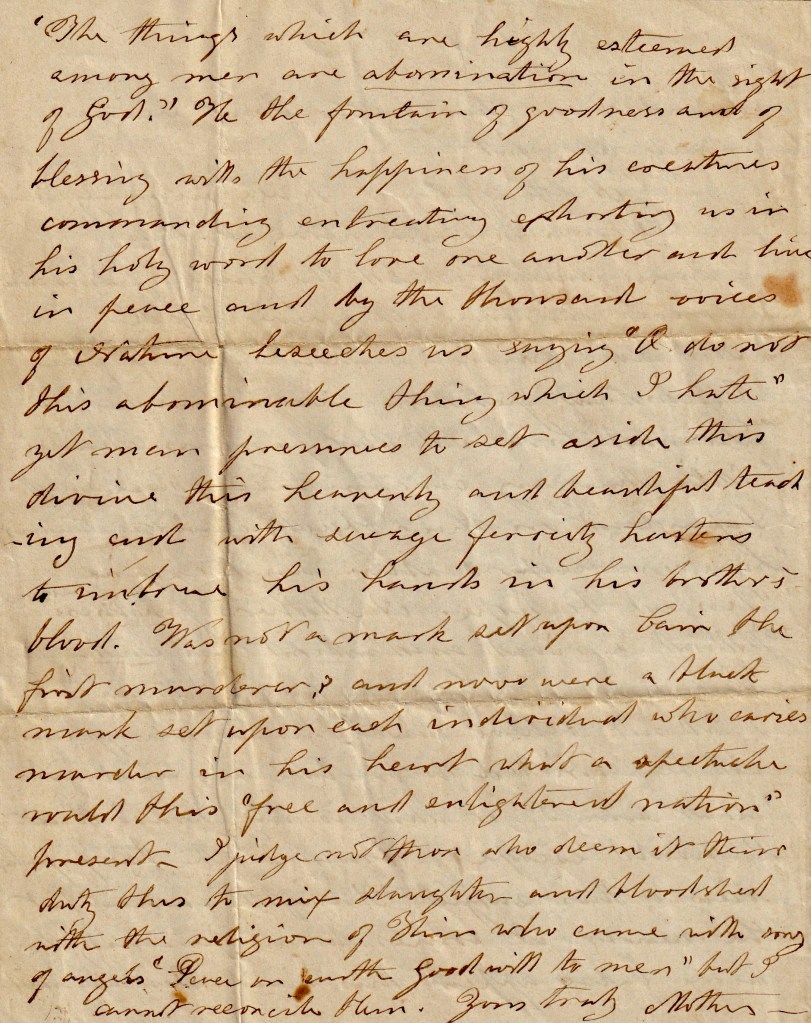 "The things which are highly esteemed
among men are abomination in the sight
of God." He the fountain of goodness and of
blessing wills the happiness of his creatures
commanding entreating exhorting us in
his holy word to love one another and live
in peace and by the thousand voices
of Nature beseeches us saying "O do not
this abominable thing which I hate"
yet man presumes to set aside this
divine this heavenly and beautiful teach
-ing and with savage ferocity hastens
to imbrue his hands in his brother's
blood. Was not a mark set upon Cain the
first murderer? and now were a black
mark set upon each individual who caries
murder in his heart what a spectacle
would this "free and enlightened nation"
present - I judge not those who deem it their
duty thus to mix slaughter and bloodshed
with the religion of Him who came with song
of angels "Peace on earth Good will to men" but I
cannot reconcile them. Yours truly Mother -